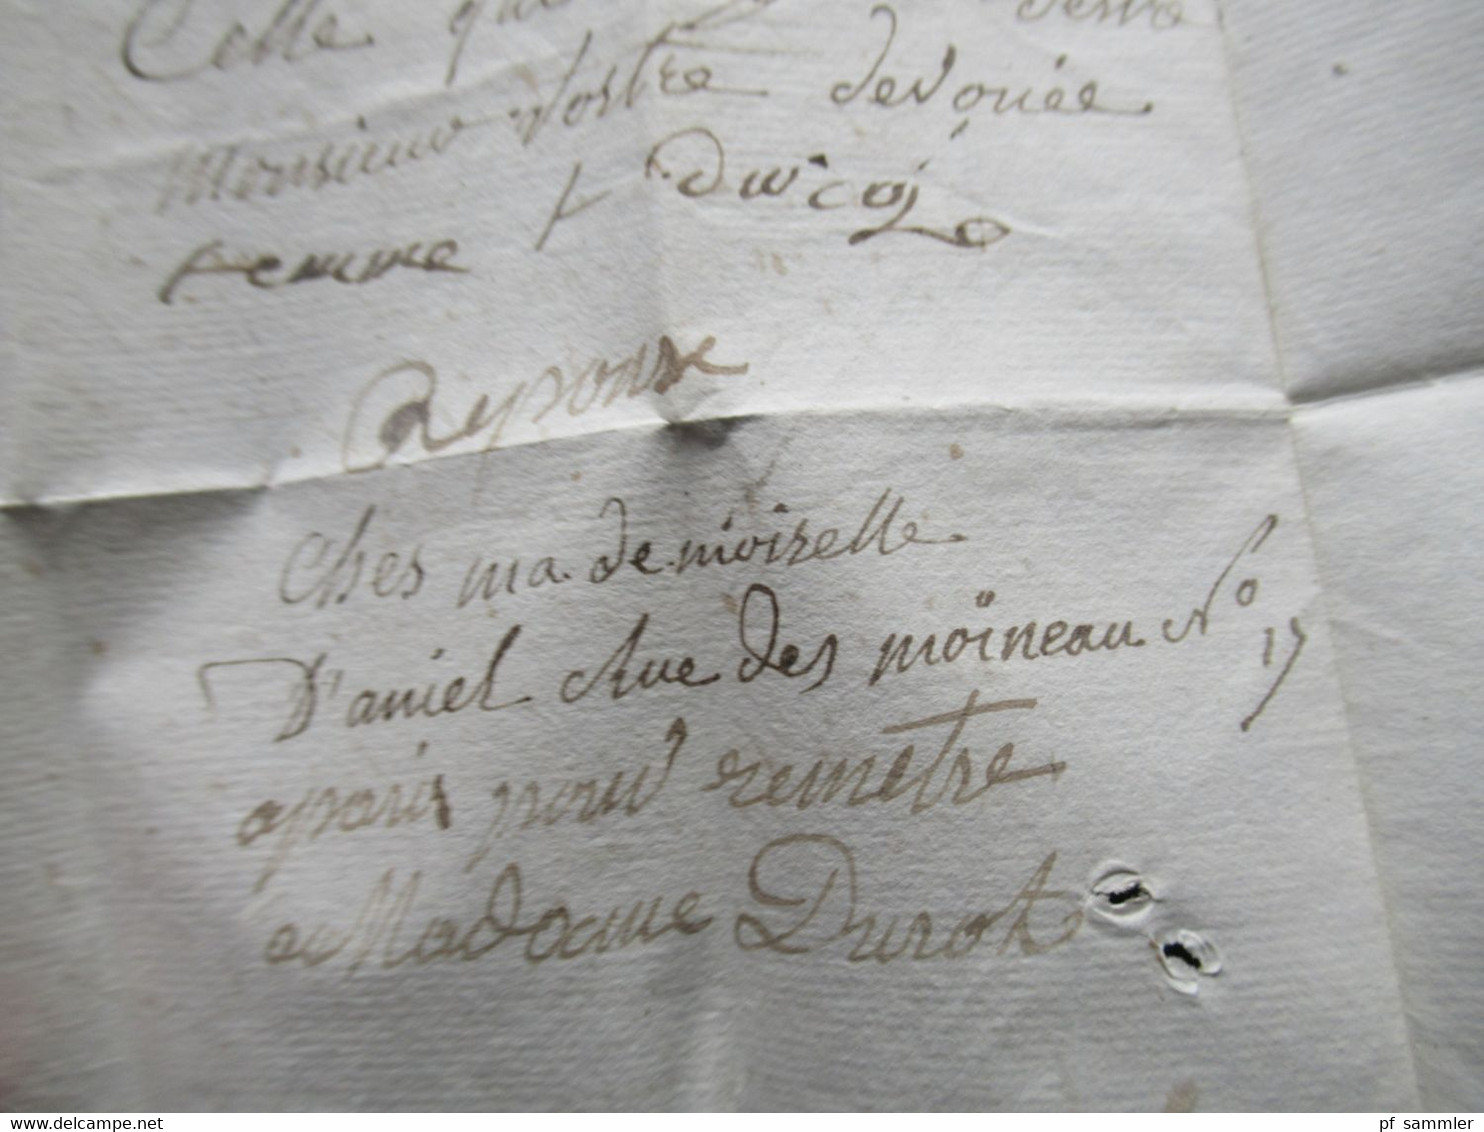 Celle que
Monsieur Vostre devouée
femme
Reponse
Ches ma demoiselle
D'aniel Rue des moineau No 17
a paris pour remetre
a Madame Durot
pf sammler